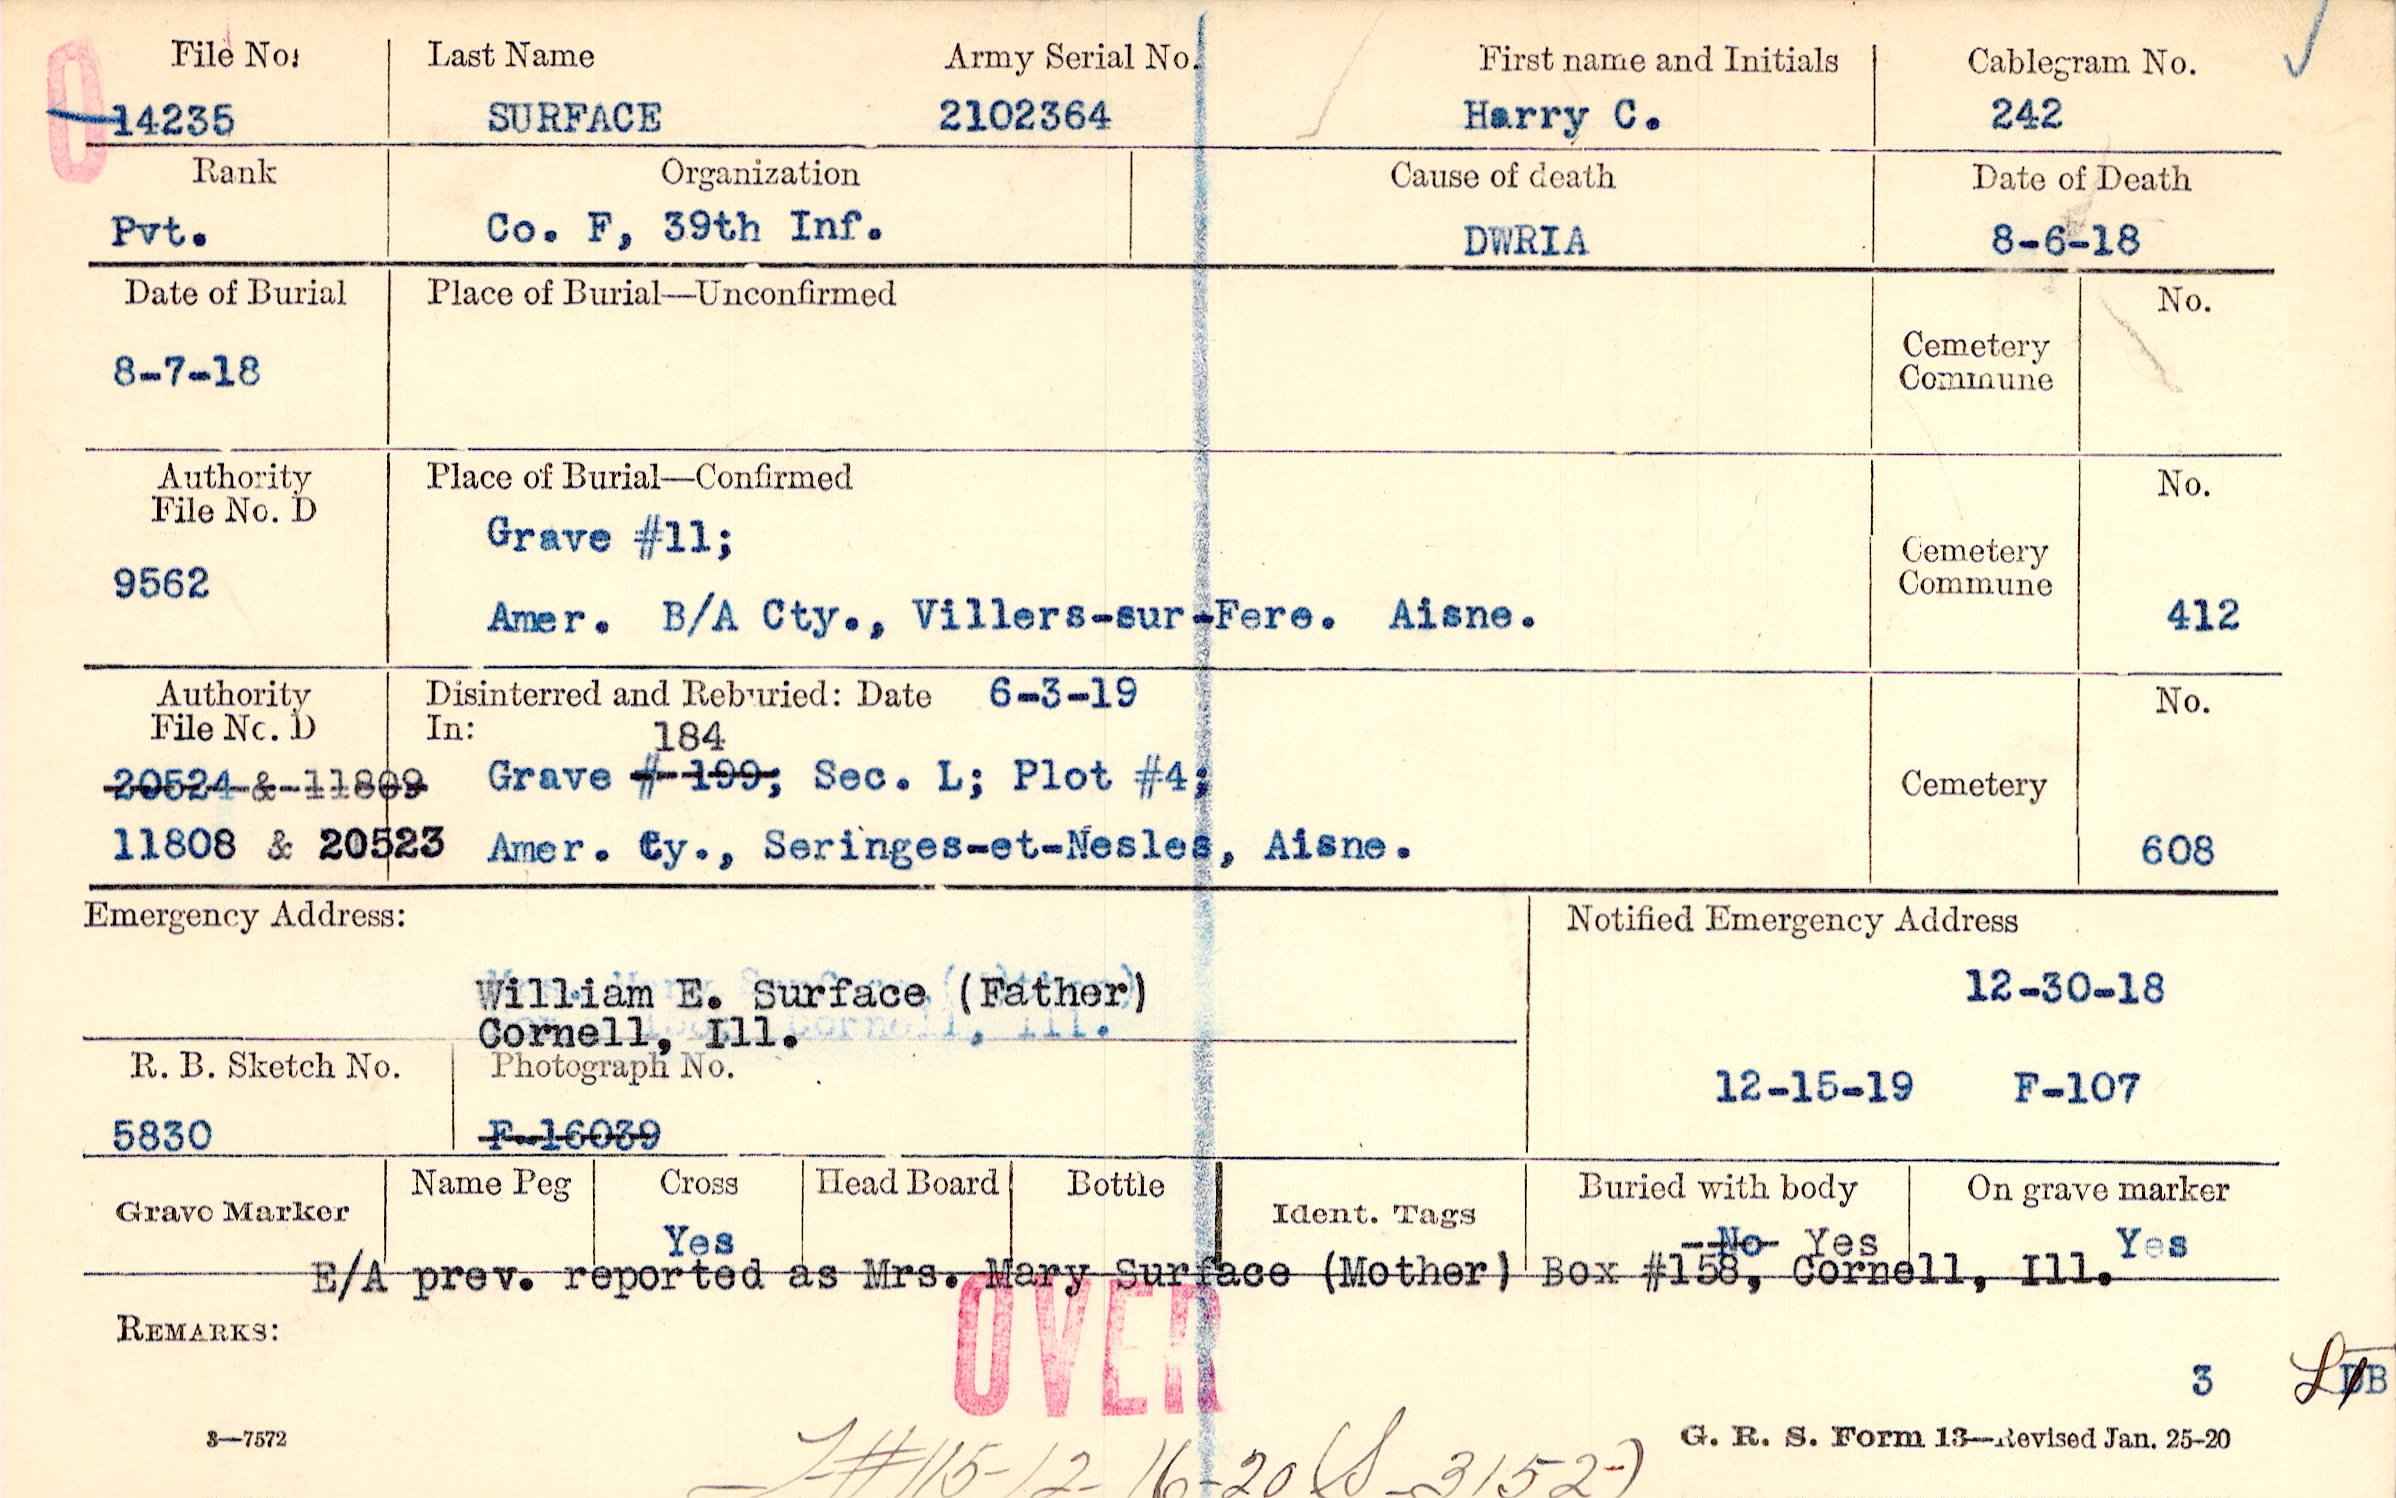 File No. Last Name Army Serial No. First name and Initials Cablegram No.
14235 SURFACE 2102364 Harry C. 242
Rank Organization Cause of death Date of Death
Pvt. Co. F, 39th Inf. DWRIA 8-6-18
Date of Burial Place of Burial—Unconfirmed No.
8-7-18 Cemetery
Commune
Authority Place of Burial—Confirmed No.
File No. D
Grave #11;
9562 Cemetery
Commune
Amer. B/A Cty., Villers-sur-Fere. Aisne. 412
Authority Disinterred and Reburied: Date 6-3-19 No.
File No. D In: 184
20524 & 11809 Grave # 199; Sec. L; Plot #4; Cemetery
11808 & 20523 Amer. Cy., Seringes-et-Nesles, Aisne. 608
Emergency Address: Notified Emergency Address
William E. Surface (Father) 12-30-18
Cornell, Ill.
R. B. Sketch No. Photograph No. 12-15-19 F-107
5830 F-16039
Grave Marker Name Peg Cross Head Board Bottle Ident. Tags Buried with body On grave marker
Yes No Yes Yes
E/A prev. reported as Mrs. Mary Surface (Mother) Box #158, Cornell, Ill.
OVER
REMARKS:
3
3—7572 G. R. S. Form 13—Revised Jan. 25-20
#115-12-16-20 (S-3152)